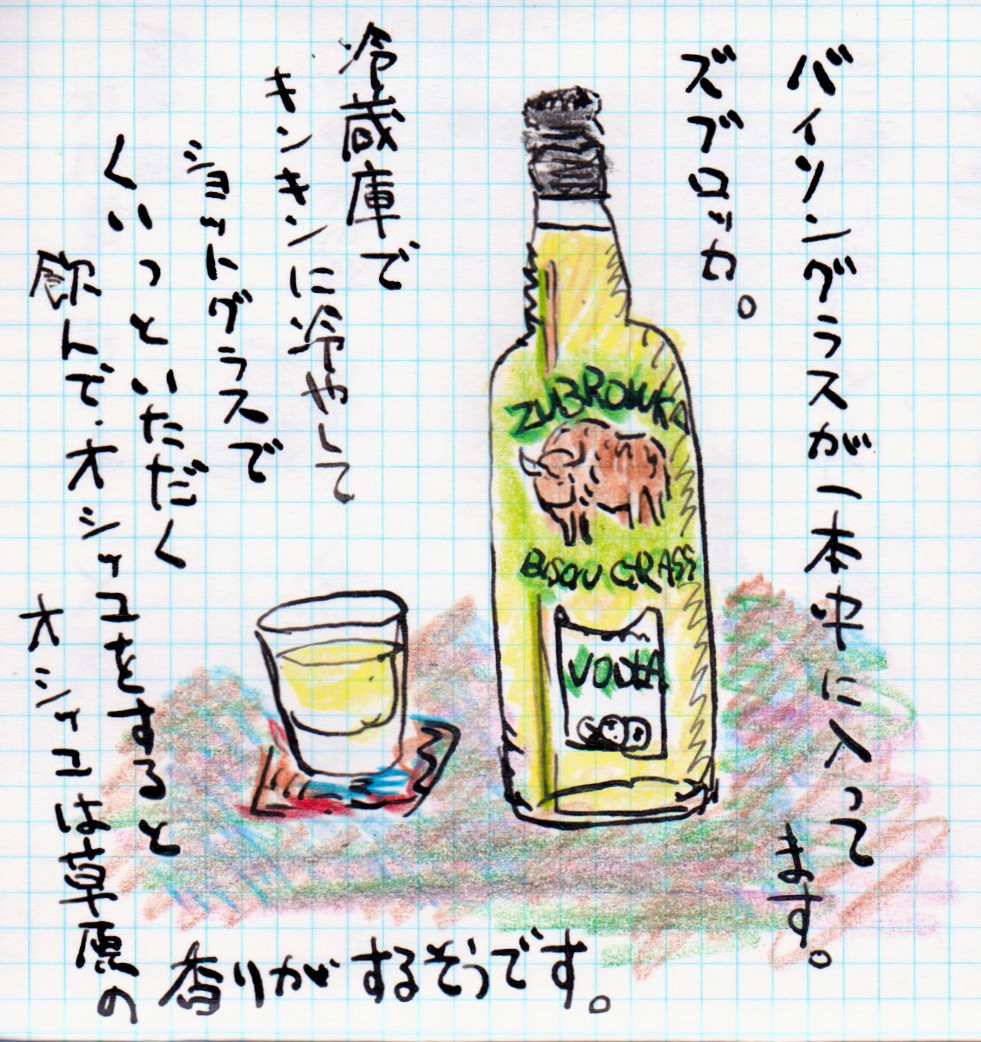 バイソングラスが一本中に入って
ます。
ズブロッカ。
冷蔵庫で
キンキンに冷やして
ショットグラスで
くいっといただく
飲んで・オシッコをすると
オシッコは草原の
香りがするそうです。
ZUBROWKA
BISON GRASS
VODKA